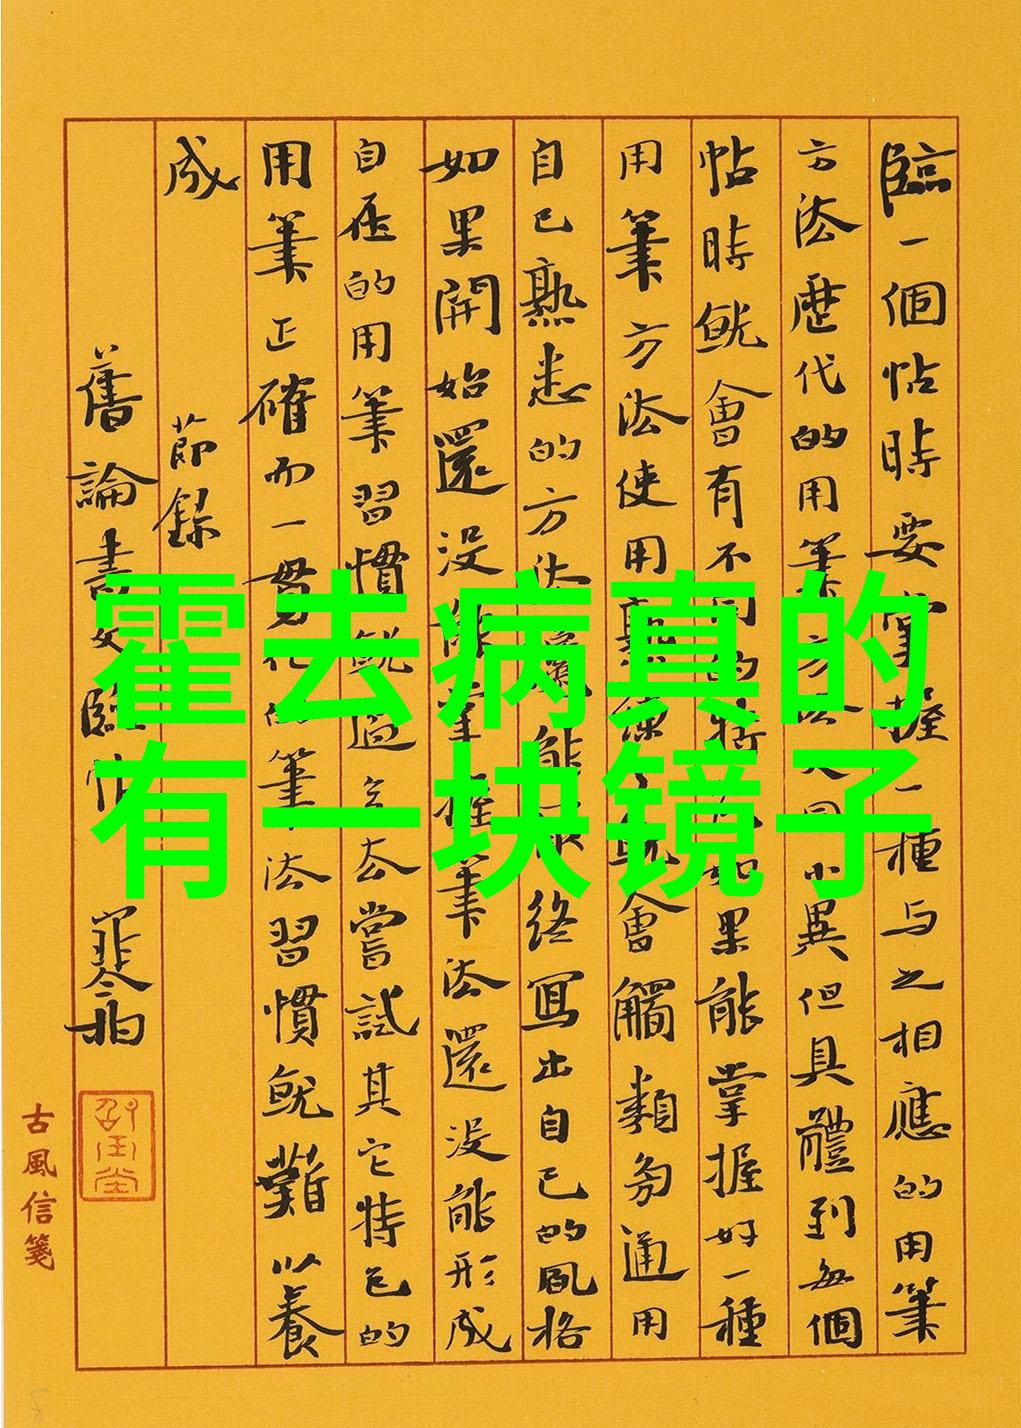 霍去病真的
有一块镜子
臨一個帖時要掌握一種与之相應的用筆
方法歷代的用筆方法大同小異但具體到每個
帖時就會有不同的特如果能掌握好一種
用筆方法使用熟練了就會觸類旁通用
自己熟悉的方法能終寫出自己的風格
如果開始還没能掌握筆法還没能形成
自在的用筆習慣就過去嘗試其它特色的
用筆正確而一貫的筆法習慣就難以養
成 節錄
舊論書文臨帖
古風信箋